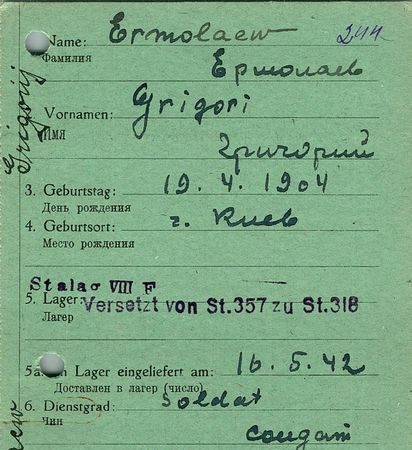 Name: Ermolaew 244
Фамилия
Ермолаев
Vornamen: Grigori
Имя
Григорий
3. Geburtstag: 19. 4. 1904
День рождения
4. Geburtsort: г. Киев
Место рождения
Stalag VIII F
5. Lager: Versetzt von St.357 zu St.318
Лагер
5a. Im Lager eingeliefert am: 16. 5. 42
Доставлен в лагер (число)
6. Dienstgrad: Soldat
Чин
солдат
Grigorij